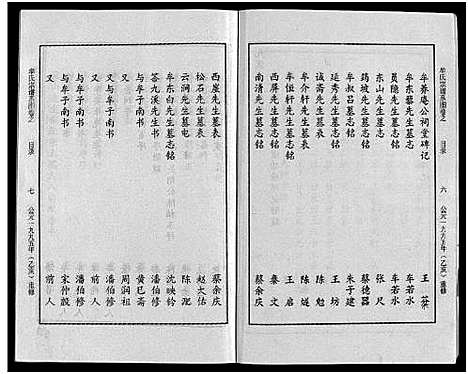 牟氏宗谱系图卷之一 目录 六 公元一九九五年(乙亥)重修
牟养庵公祠堂碑记 王棻
牟东藜先生墓志 牟若水
员隐先生墓志 牟若水
东山先生墓志 张尺
筠坡先生墓志 蔡德器
牟叔吕墓志 朱于建
延秀先生墓志铭 王坊
诚斋先生墓表 陈勉
牟介轩先生墓表 陈燧
牟恒轩先生墓志铭 王启
南屏先生墓志铭 秦文
南清先生墓志铭 蔡余庆
西崖先生墓表 蔡余庆
松石先生墓表 赵大佑
云涧先生墓志铭 陈泚
牟东白先生墓志铭 沈映钤
答九溪先生书 潘伯修
与牟子南书 黄巳斋
又 周润祖
与牟子南书 潘伯修
与牟子南书 宋仲殷
又 前人
牟氏宗谱系图卷之一 目录 七 公元一九九五年(乙亥)重修